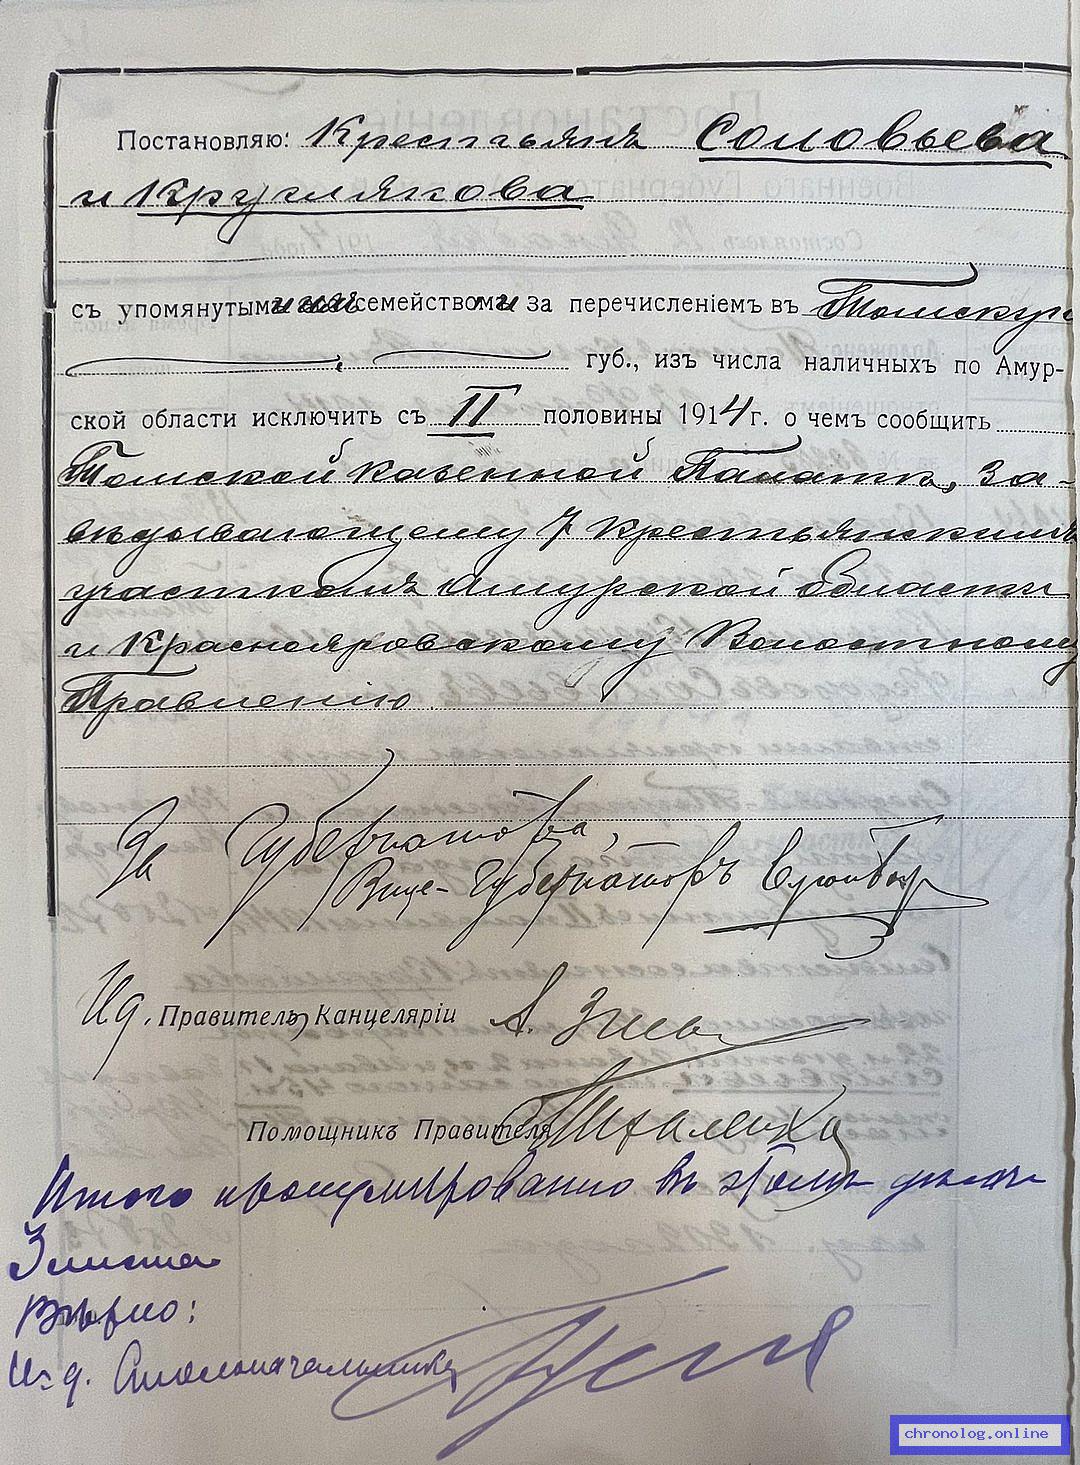 Постановляю: Крестьянъ Соловьева
и Круглякова
съ упомянутыми ихъ семействоми за перечисленіемъ въ Томскую
губ., изъ числа наличныхъ по Амур-
ской области исключить съ II половины 1914 г. о чемъ сообщить
Томской Казенной Палатѣ, За-
вѣдывающему 7 крестьянскимъ
участкомъ Амурской области
и Краснояровскому Волостному
Правленію.
За Губернатора,
Вице-Губернаторъ
И.д. Правитель Канцеляріи А.
Помощникъ Правителя
Итого пронумеровано въ этомъ дѣлѣ
3 листа
Вѣрно:
И.д. Столоначальника
chronolog.online